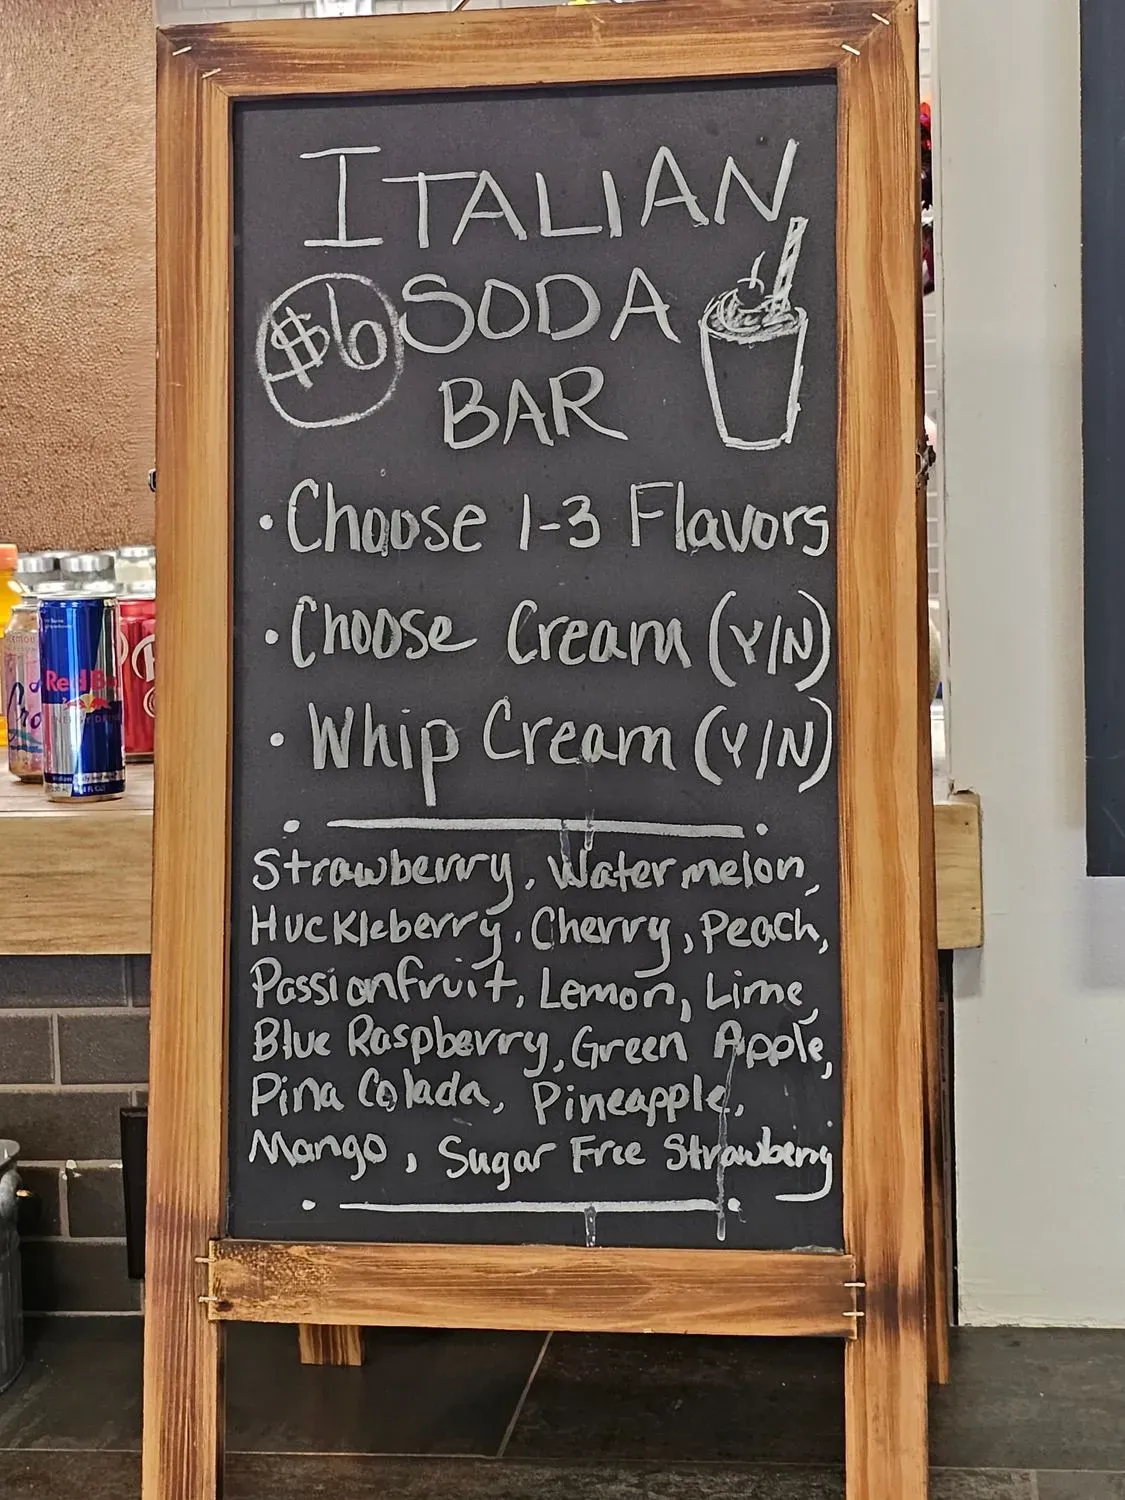 ITALIAN
$6 SODA
BAR
• Choose 1-3 Flavors
• Choose Cream (Y/N)
• Whip Cream (Y/N)
Strawberry, Watermelon,
Huckleberry, Cherry, Peach,
Passionfruit, Lemon, Lime,
Blue Raspberry, Green Apple,
Pina Colada, Pineapple,
Mango, Sugar Free Strawberry
Red Bu
ENERGY DRINK